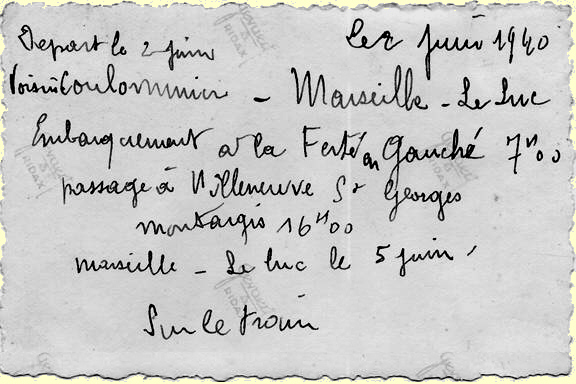 Le 2 juin 1940
Depart le 2 juin
Voisin Coulommier - Marseille - Le Luc
Embarquement a la Ferté en Gauché 7H00
passage à Villeneuve St Georges
montargis 16H00
marseille - Le Luc le 5 juin,
Sur le train